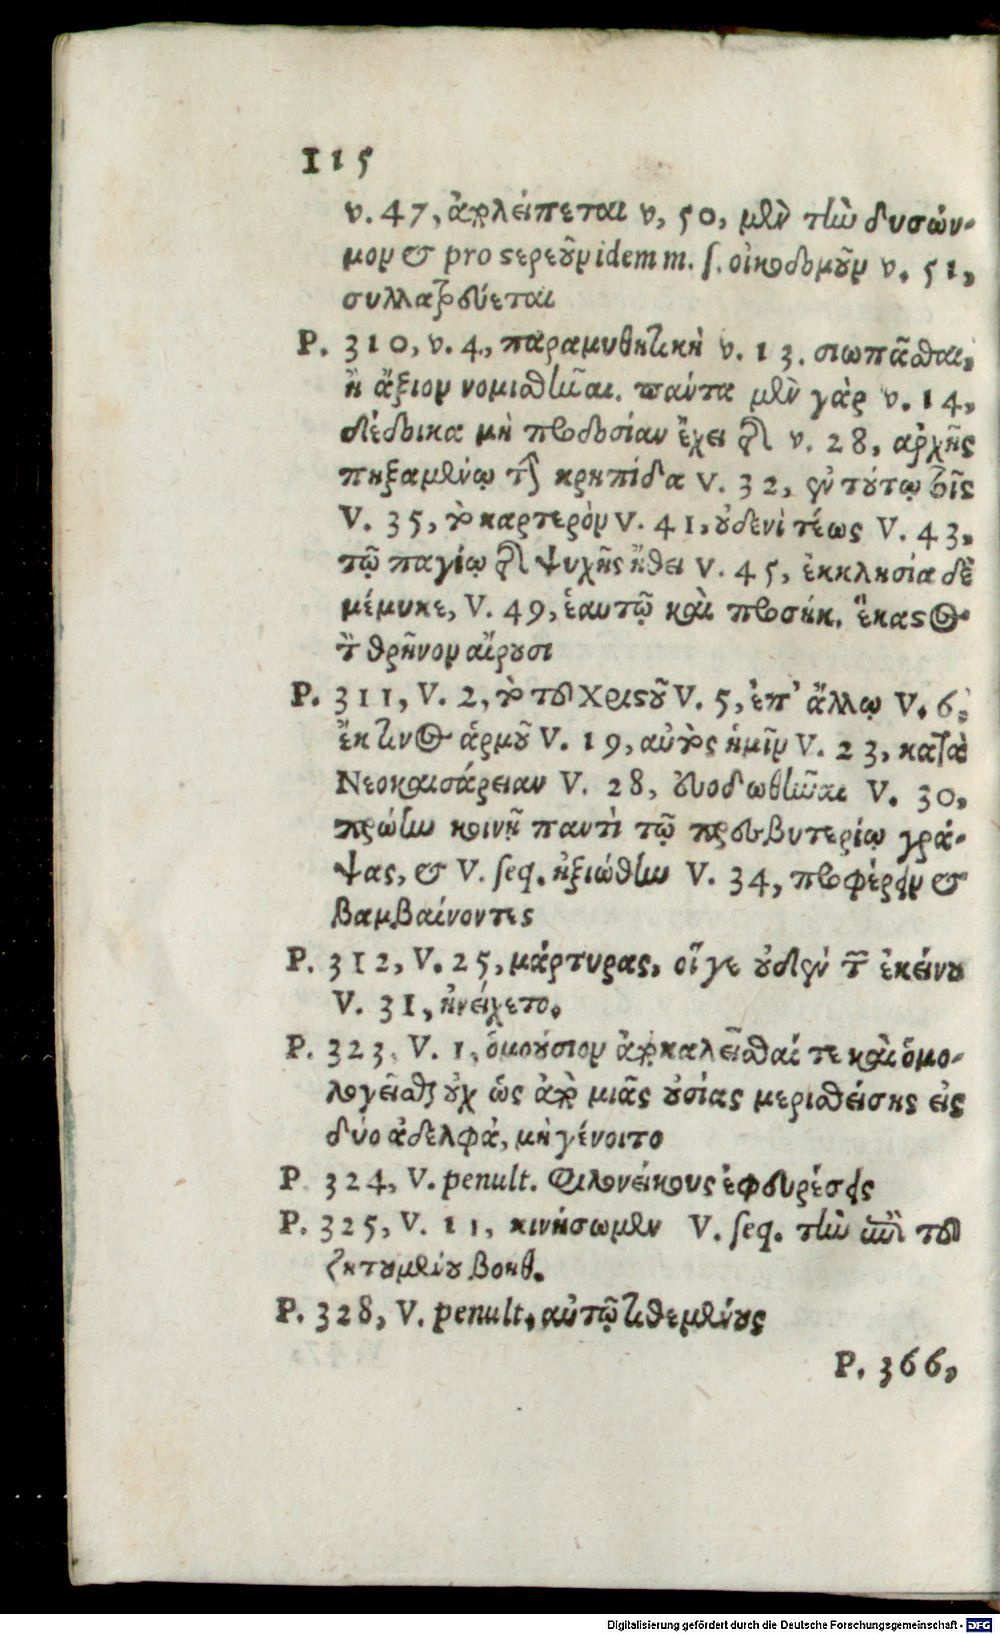 115
v. 47, ἀπολείπεται v, 50, μὲν τὴν δυσών-
μον & pro ςερεοῦν idem m. ſ. οἰκοδομοῦν v. 51,
συλλατρεύεται
P. 310, v. 4, παραμυθητικὴ v. 13. σιωπᾶσθαι,
ἢ ἄξιον νομισθῆναι. πάντα μὲν γὰρ v. 14,
δέδοικα μὴ προδοσίαν ἔχει v. 28, ἀρχῆς
πηξαμένῳ τὴν κρηπίδα V. 32, ἐν τούτῳ τοῖς
V. 35, τὸ καρτερὸν V. 41, οὐδενὶ τέως V. 43,
τῷ παγίῳ τῆς ψυχῆς ἤθει V. 45, ἐκκλησία δὲ
μέμυκε, V. 49, ἑαυτῷ καὶ προσήκ. ἕκαςος
τὸν θρῆνον αἴρουσι
P. 311, V. 2, τὸ τοῦ Χριςοῦ V. 5, ἐπ' ἄλλῳ V. 6,
ἔκτινος ἁρμοῦ V. 19, αὐτὸς ἡμῖν V. 23, κατὰ
Νεοκαισάρειαν V. 28, εὐοδωθῆναι V. 30,
πρώτῳ κοινῇ παντὶ τῷ πρεσβυτερίῳ γρά-
ψας, & V. ſeq. ἠξιώθην V. 34, προφέρειν &
βαμβαίνοντες
P. 312, V. 25, μάρτυρας, οἵγε οὐδὲν τῶν ἐκείνου
V. 31, ἠνείχετο.
P. 323, V. 1, ὁμούσιον ἀποκαλεῖσθαί τε καὶ ὁμο-
λογεῖσθαι οὐχ ὡς ἀπὸ μιᾶς οὐσίας μερισθείσης εἰς
δύο ἀδελφὰ, μὴ γένοιτο
P 324, V. penult. Φιλονείκους ἐφευρέσεις
P. 325, V. 11, κινήσωμεν V. ſeq. τὴν ἐπὶ τοῦ
ζητουμένου βοηθ.
P. 328, V. penult, αὐτῷ τιθεμένους
P. 366,
Digitalisierung gefördert durch die Deutsche Forschungsgemeinschaft - DFG